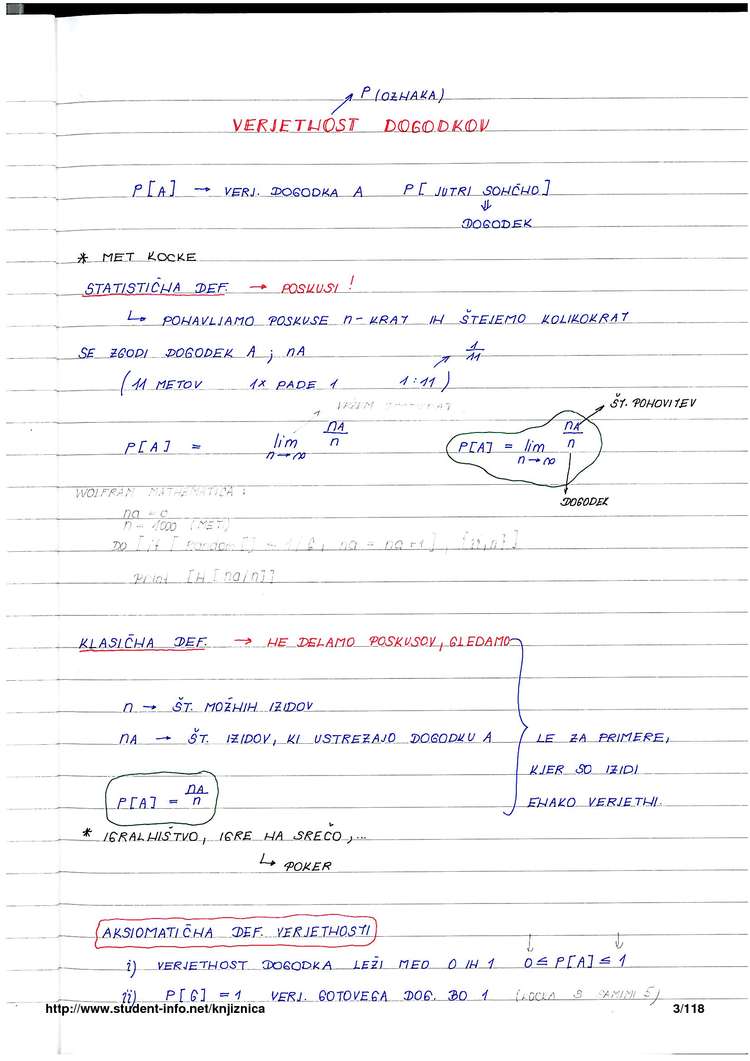 P (OZNAKA)
VERJETNOST DOGODKOV
P[A] → VERJ. DOGODKA A P[JUTRI SONČNO]
⇓
DOGODEK
* MET KOCKE
STATISTIČNA DEF. → POSKUSI!
↳ PONAVLJAMO POSKUSE n-KRAT IN ŠTEJEMO KOLIKOKRAT
SE ZGODI DOGODEK A; nA 1/11
(11 METOV 1x PADE 1 1:11)
ŠT. PONOVITEV
P[A] = lim n→∞ nA/n P[A] = lim n→∞ nA/n
DOGODEK
WOLFRAM MATHEMATICA:
na = 0
n = 1000 (MET)
DO [If [Random[] = 1/6, na = na+1], {n}]
Print [N[na/n]]
KLASIČNA DEF. → NE DELAMO POSKUSOV, GLEDAMO
n → ŠT. MOŽNIH IZIDOV
nA → ŠT. IZIDOV, KI USTREZAJO DOGODKU A
LE ZA PRIMERE,
KJER SO IZIDI
ENAKO VERJETNI.
P[A] = nA/n
* IGRALNIŠTVO, IGRE NA SREČO,...
↳ POKER
AKSIOMATIČNA DEF. VERJETNOSTI
i) VERJETNOST DOGODKA LEŽI MED 0 IN 1 0 ≤ P[A] ≤ 1
ii) P[G] = 1 VERJ. GOTOVEGA DOG. BO 1
http://www.student-info.net/knjiznica 3/118